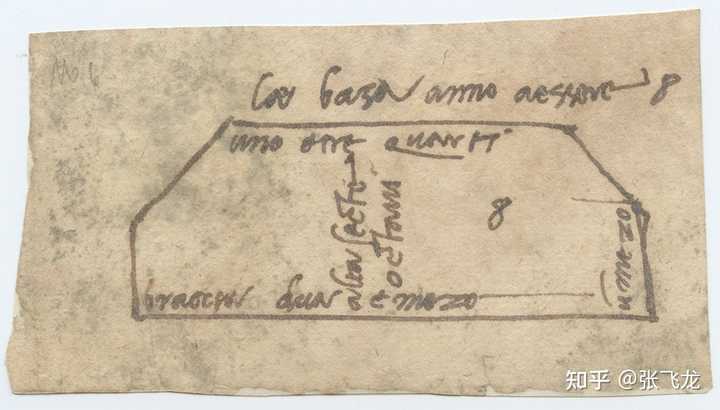 le baze anno aessere 8
uno etre quarti
alta secti
octavi
8
u mezo
braccia dua e mezo
知乎 @张飞龙